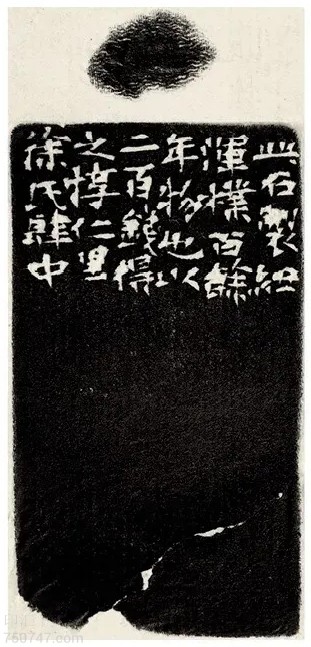 此石製紐
渾樸百餘
年物也以
二百錢得
之惇仁里
徐氏肆中
750747.com